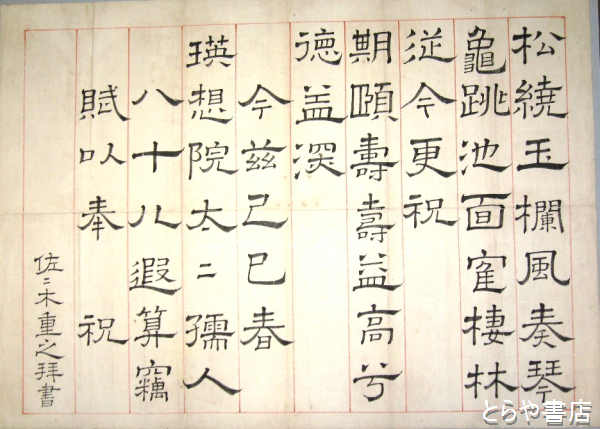 松繞玉欄風奏琴
龜跳池面寉棲林
従今更祝
期頤壽壽益高兮
徳益深
今兹己巳春
瑛想院太二孺人
八十八遐算竊
賦以奉祝
佐二木重之拜書
とらや書店